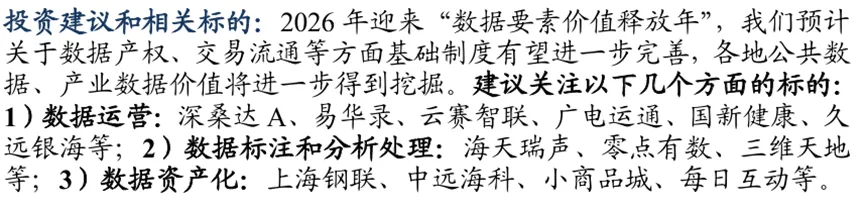 投资建议和相关标的：2026 年迎来“数据要素价值释放年”，我们预计
关于数据产权、交易流通等方面基础制度有望进一步完善，各地公共数
据、产业数据价值将进一步得到挖掘。建议关注以下几个方面的标的：
1）数据运营：深桑达 A、易华录、云赛智联、广电运通、国新健康、久
远银海等；2）数据标注和分析处理：海天瑞声、零点有数、三维天地
等；3）数据资产化：上海钢联、中远海科、小商品城、每日互动等。